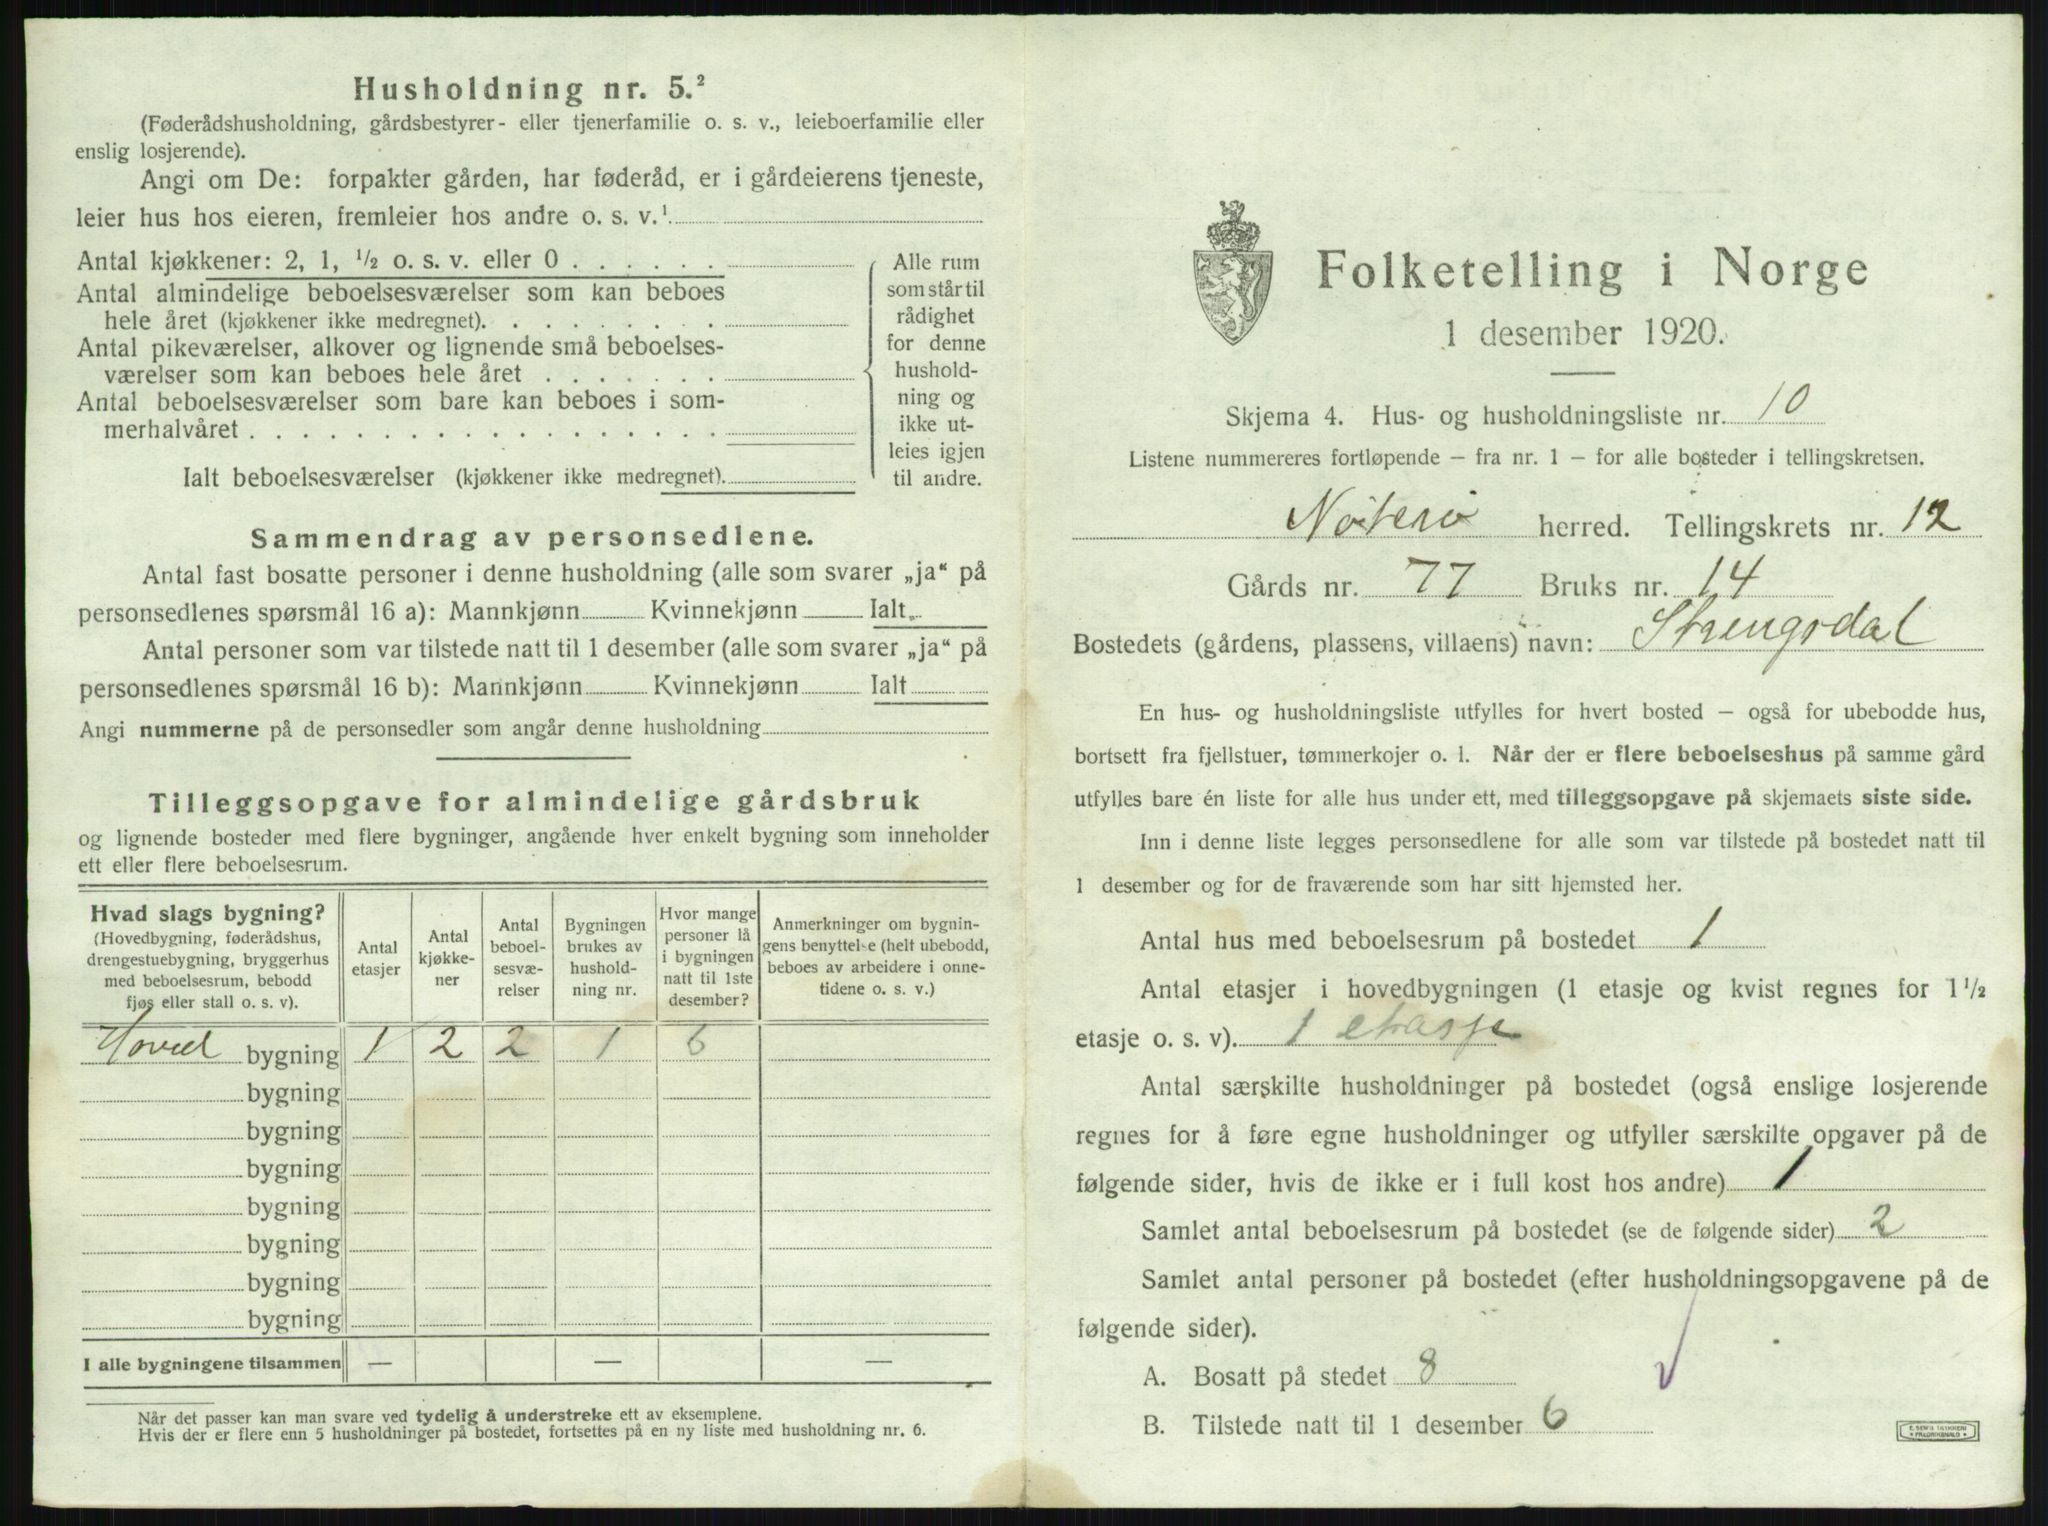 Husholdning nr. 5.²
(Føderådshusholdning, gårdsbestyrer- eller tjenerfamilie o. s. v., leieboerfamilie eller
enslig losjerende).
Angi om De: forpakter gården, har føderåd, er i gårdeierens tjeneste,
leier hus hos eieren, fremleier hos andre o. s. v.¹
Antal kjøkkener: 2, 1, ½ o. s. v. eller 0 . . . . . .
Antal almindelige beboelsesværelser som kan beboes
hele året (kjøkkener ikke medregnet). . . . . . . . .
Antal pikeværelser, alkover og lignende små beboelses-
værelser som kan beboes hele året . . . . . . .
Antal beboelsesværelser som bare kan beboes i som-
merhalvåret . . . . . . . . . . . . . . . . . .
Ialt beboelsesværelser (kjøkkener ikke medregnet).
Alle rum
som står til
rådighet
for denne
hushold-
ning og
ikke ut-
leies igjen
til andre.
Sammendrag av personsedlene.
Antal fast bosatte personer i denne husholdning (alle som svarer „ja“ på
personsedlenes spørsmål 16 a): Mannkjønn Kvinnekjønn Ialt
Antal personer som var tilstede natt til 1 desember (alle som svarer „ja“ på
personsedlenes spørsmål 16 b): Mannkjønn Kvinnekjønn Ialt
Angi nummerne på de personsedler som angår denne husholdning
Tilleggsopgave for almindelige gårdsbruk
og lignende bosteder med flere bygninger, angående hver enkelt bygning som inneholder
ett eller flere beboelsesrum.
Hvad slags bygning?
(Hovedbygning, føderådshus,
drengestuebygning, bryggerhus
med beboelsesrum, bebodd
fjøs eller stall o. s. v).
Antal
etasjer
Antal
kjøkke-
ner
Antal
beboel-
sesvæ-
relser
Bygningen
brukes av
hushold-
ning nr.
Hvor mange
personer lå
i bygningen
natt til 1ste
desember?
Anmerkninger om bygnin-
gens benyttelse (helt ubebodd,
beboes av arbeidere i onne-
tidene o. s. v.)
Hoved bygning 1 2 2 1 6
bygning
bygning
bygning
bygning
bygning
bygning
bygning
I alle bygningene tilsammen — — —
Når det passer kan man svare ved tydelig å understreke ett av eksemplene.
Hvis der er flere enn 5 husholdninger på bostedet, fortsettes på en ny liste med husholdning nr. 6.
Folketelling i Norge
1 desember 1920.
Skjema 4. Hus- og husholdningsliste nr. 10
Listene nummereres fortløpende – fra nr. 1 – for alle bosteder i tellingskretsen.
Nøterø herred. Tellingskrets nr. 12
Gårds nr. 77 Bruks nr. 14
Bostedets (gårdens, plassens, villaens) navn: Strengsdal
En hus- og husholdningsliste utfylles for hvert bosted – også for ubebodde hus,
bortsett fra fjellstuer, tømmerkojer o. l. Når der er flere beboelseshus på samme gård
utfylles bare én liste for alle hus under ett, med tilleggsopgave på skjemaets siste side.
Inn i denne liste legges personsedlene for alle som var tilstede på bostedet natt til
1 desember og for de fraværende som har sitt hjemsted her.
Antal hus med beboelsesrum på bostedet 1
Antal etasjer i hovedbygningen (1 etasje og kvist regnes for 1½
etasje o. s. v). 1 etasje
Antal særskilte husholdninger på bostedet (også enslige losjerende
regnes for å føre egne husholdninger og utfyller særskilte opgaver på de
følgende sider, hvis de ikke er i full kost hos andre) 1
Samlet antal beboelsesrum på bostedet (se de følgende sider) 2
Samlet antal personer på bostedet (efter husholdningsopgavene på de
følgende sider).
A. Bosatt på stedet 8
B. Tilstede natt til 1 desember 6